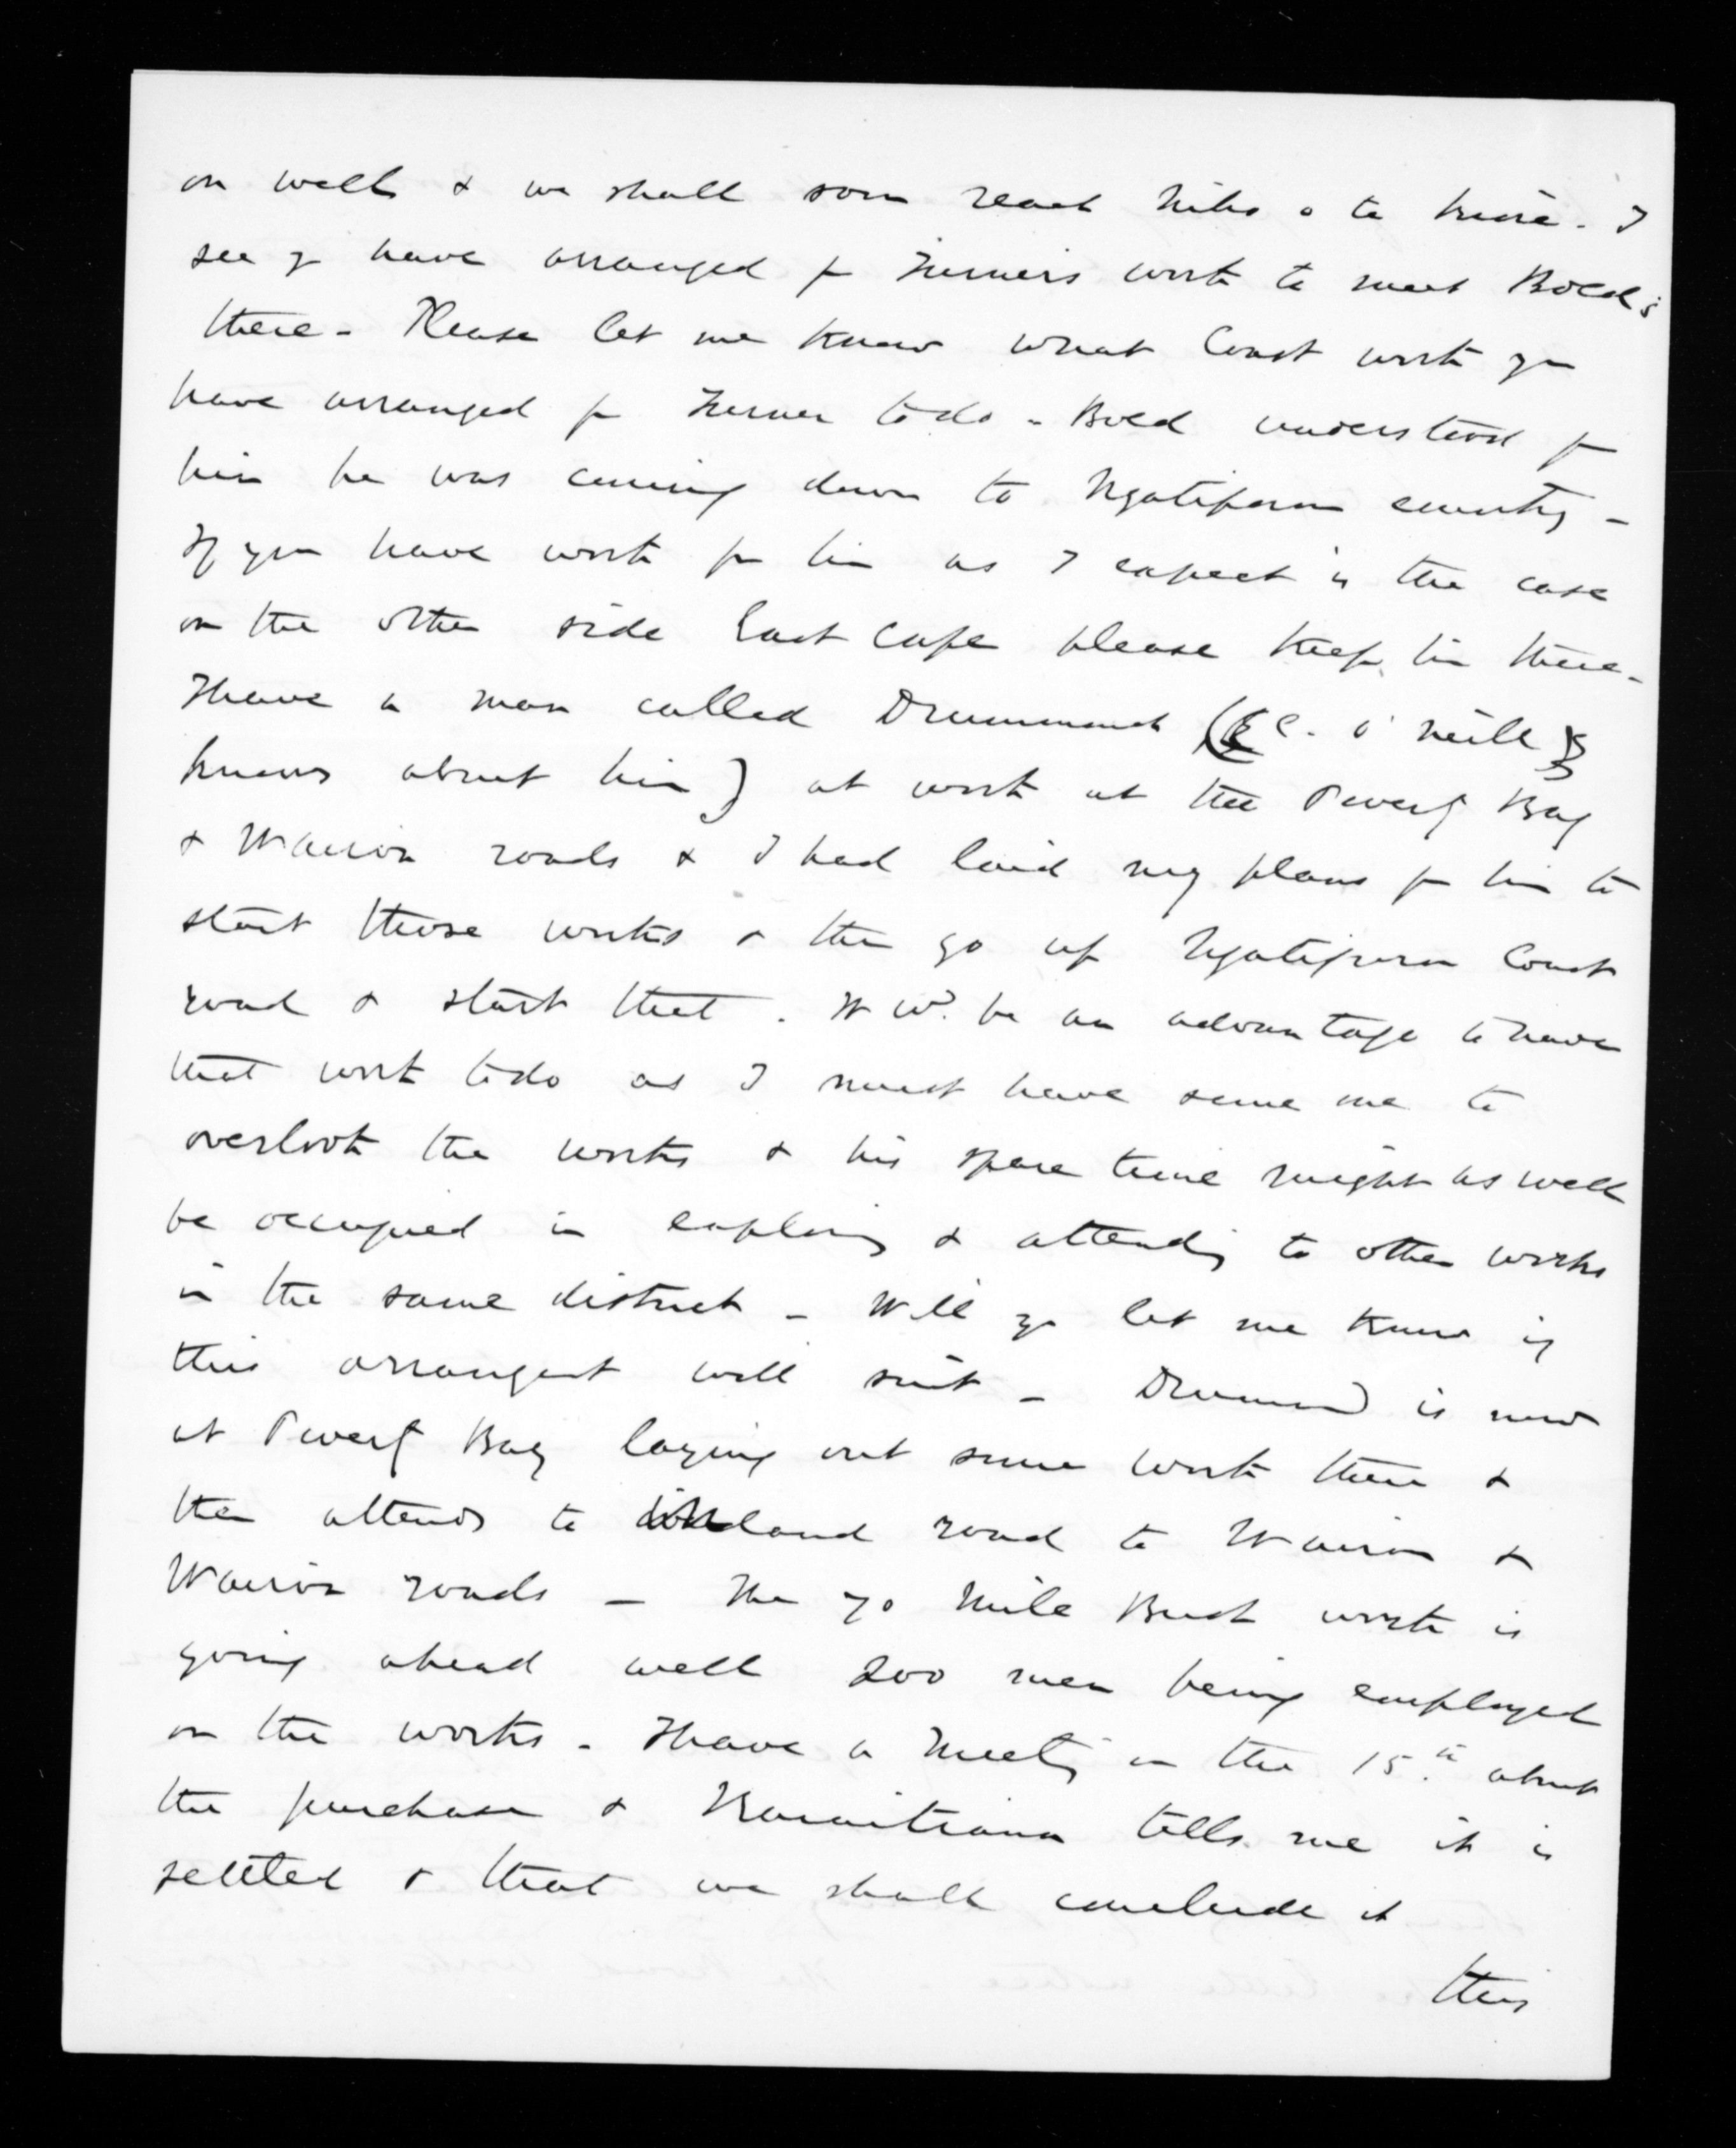 on well & we shall soon reach Niho o te kiore. I
see yr have arranged for Turner's work to meet Bold's
there - Please let me know what Coast work you
have arranged for Turner to do - Bold understood fr
him he was coming down to Ngatiporou country -
If you have work for him as I expect is the case
on the other side East Cape please keep him there -
I have a man called Drummond (C. O'Neill
knows about him) at work at the Poverty Bay
& Wairoa roads & I had laid my plans for him to
start those works & then go up Ngatiporou Coast
road & start that. It wd. be an advantage to have
that work to do as I must have some one to
overlook the works & his spare time might as well
be occupied in exploring & attending to other works
in the same district - Will yo let me know if
this arrangent will suit - Drummond is now
at Poverty Bay laying out some work there &
then attends to inland road to Wairoa &
Wairoa roads - The 70 Mile Bush work is
going ahead well 200 men being employed
on the works - I have a meeting on the 15.th about
the purchase & Karaitiana tells me it is
settled & that we shall conclude it
this